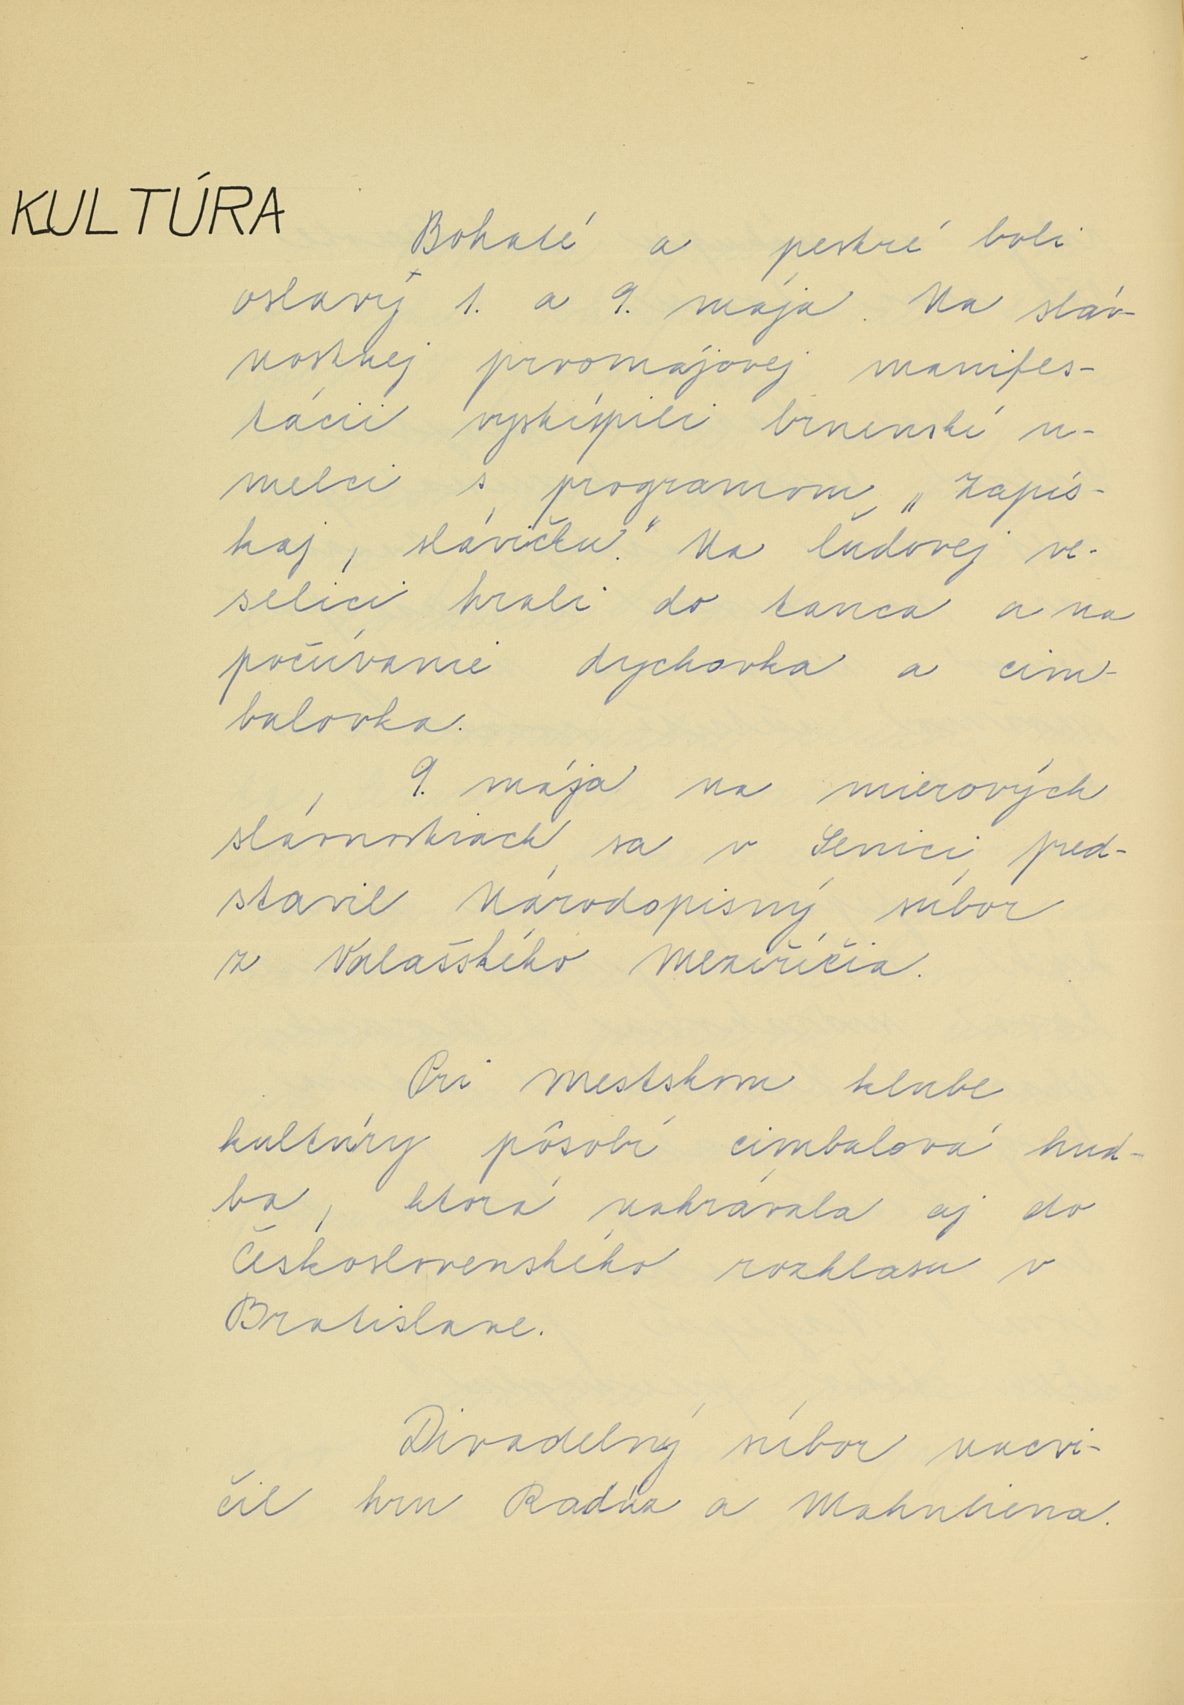 KULTÚRA
Bohaté a pestré boli
oslavy 1. a 9. mája. Na sláv-
nostnej prvomájovej manifes-
tácii vystúpili brnenskí u-
melci s programom „Zapís-
kaj, slávičku." Na ľudovej ve-
selici hrali do tanca a na
počúvanie dychovka a cim-
balovka.
9. mája na mierových
slávnostiach sa v Senici pred-
stavil Národopisný súbor
z Valašského Meziříčia.
Pri mestskom klube
kultúry pôsobí cimbalová hud-
ba, ktorá nahrávala aj do
Československého rozhlasu v
Bratislave.
Divadelný súbor nacvi-
čil hru Radúz a Mahuliena.